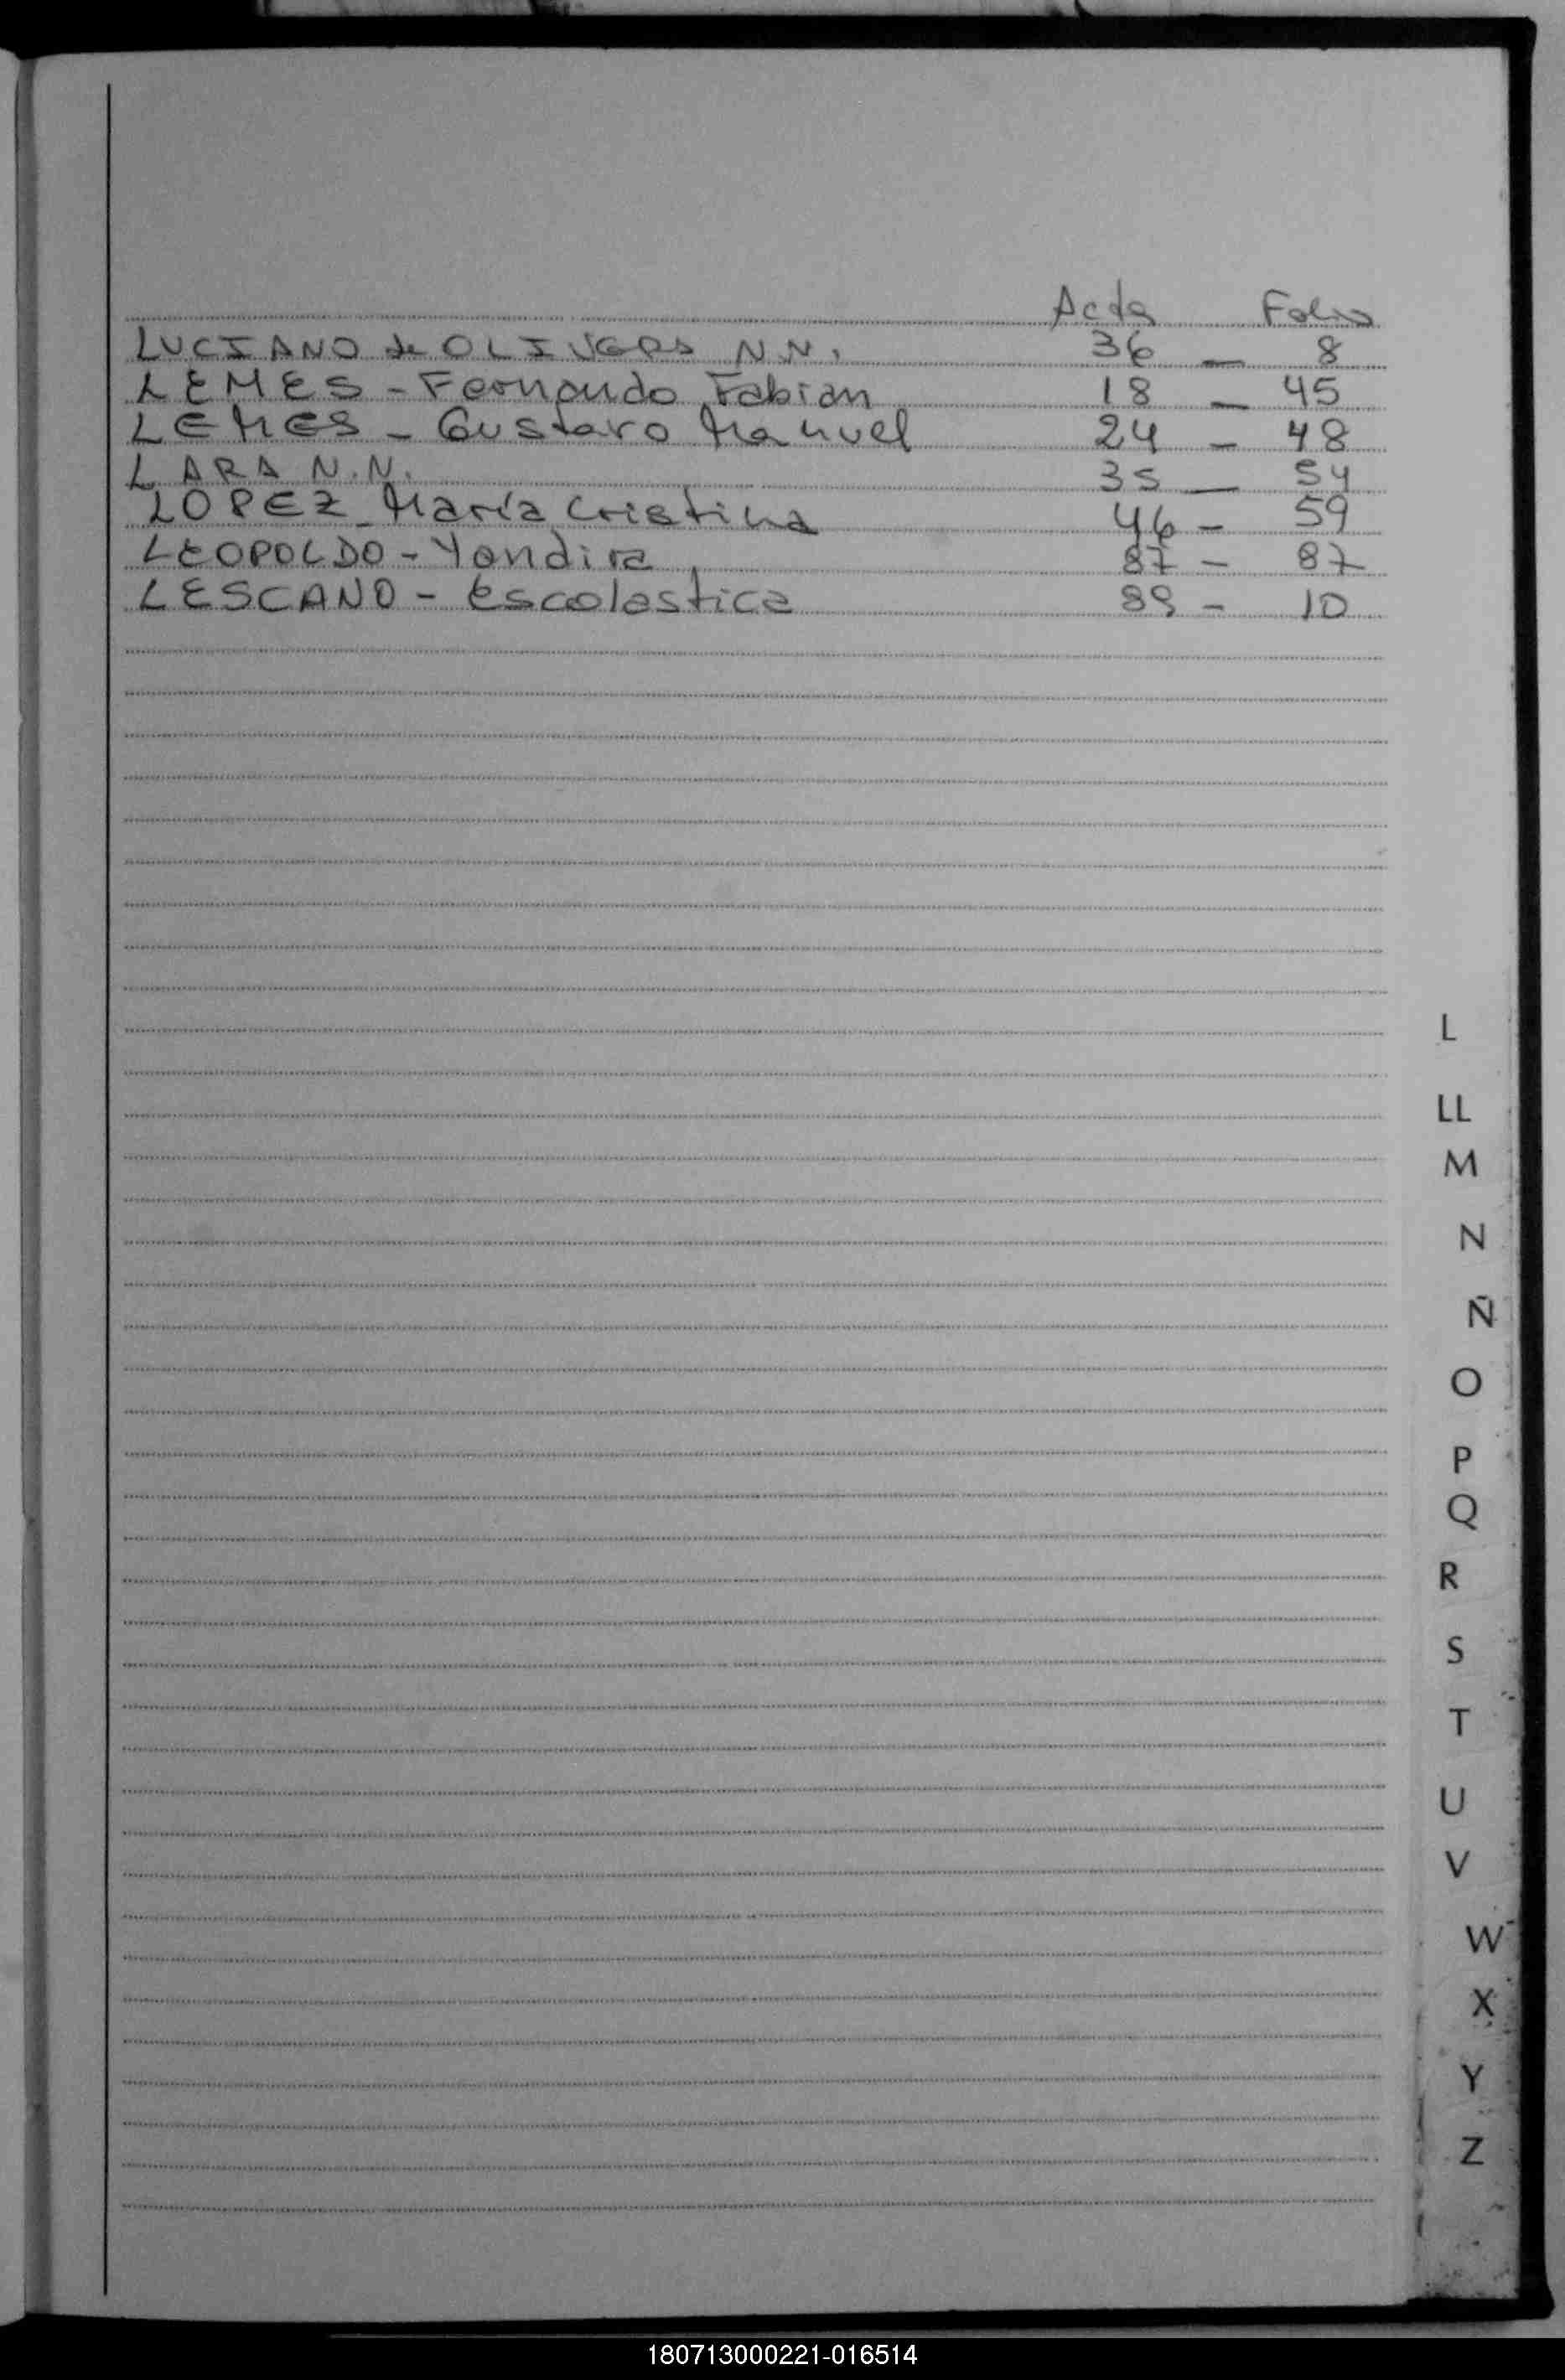 Acta Folio
LUCIANO de OLIVERA N.N. 36 — 8
LEMES - Fernando Fabian 18 — 45
LEMES - Gustavo Manuel 24 — 48
LARA N.N. 35 — 54
LOPEZ - María Cristina 46 - 59
LEOPOLDO - Yandira 87 - 87
LESCANO - Escolastica 89 - 10
L
LL
M
N
Ñ
O
P
Q
R
S
T
U
V
W
X
Y
Z
180713000221-016514